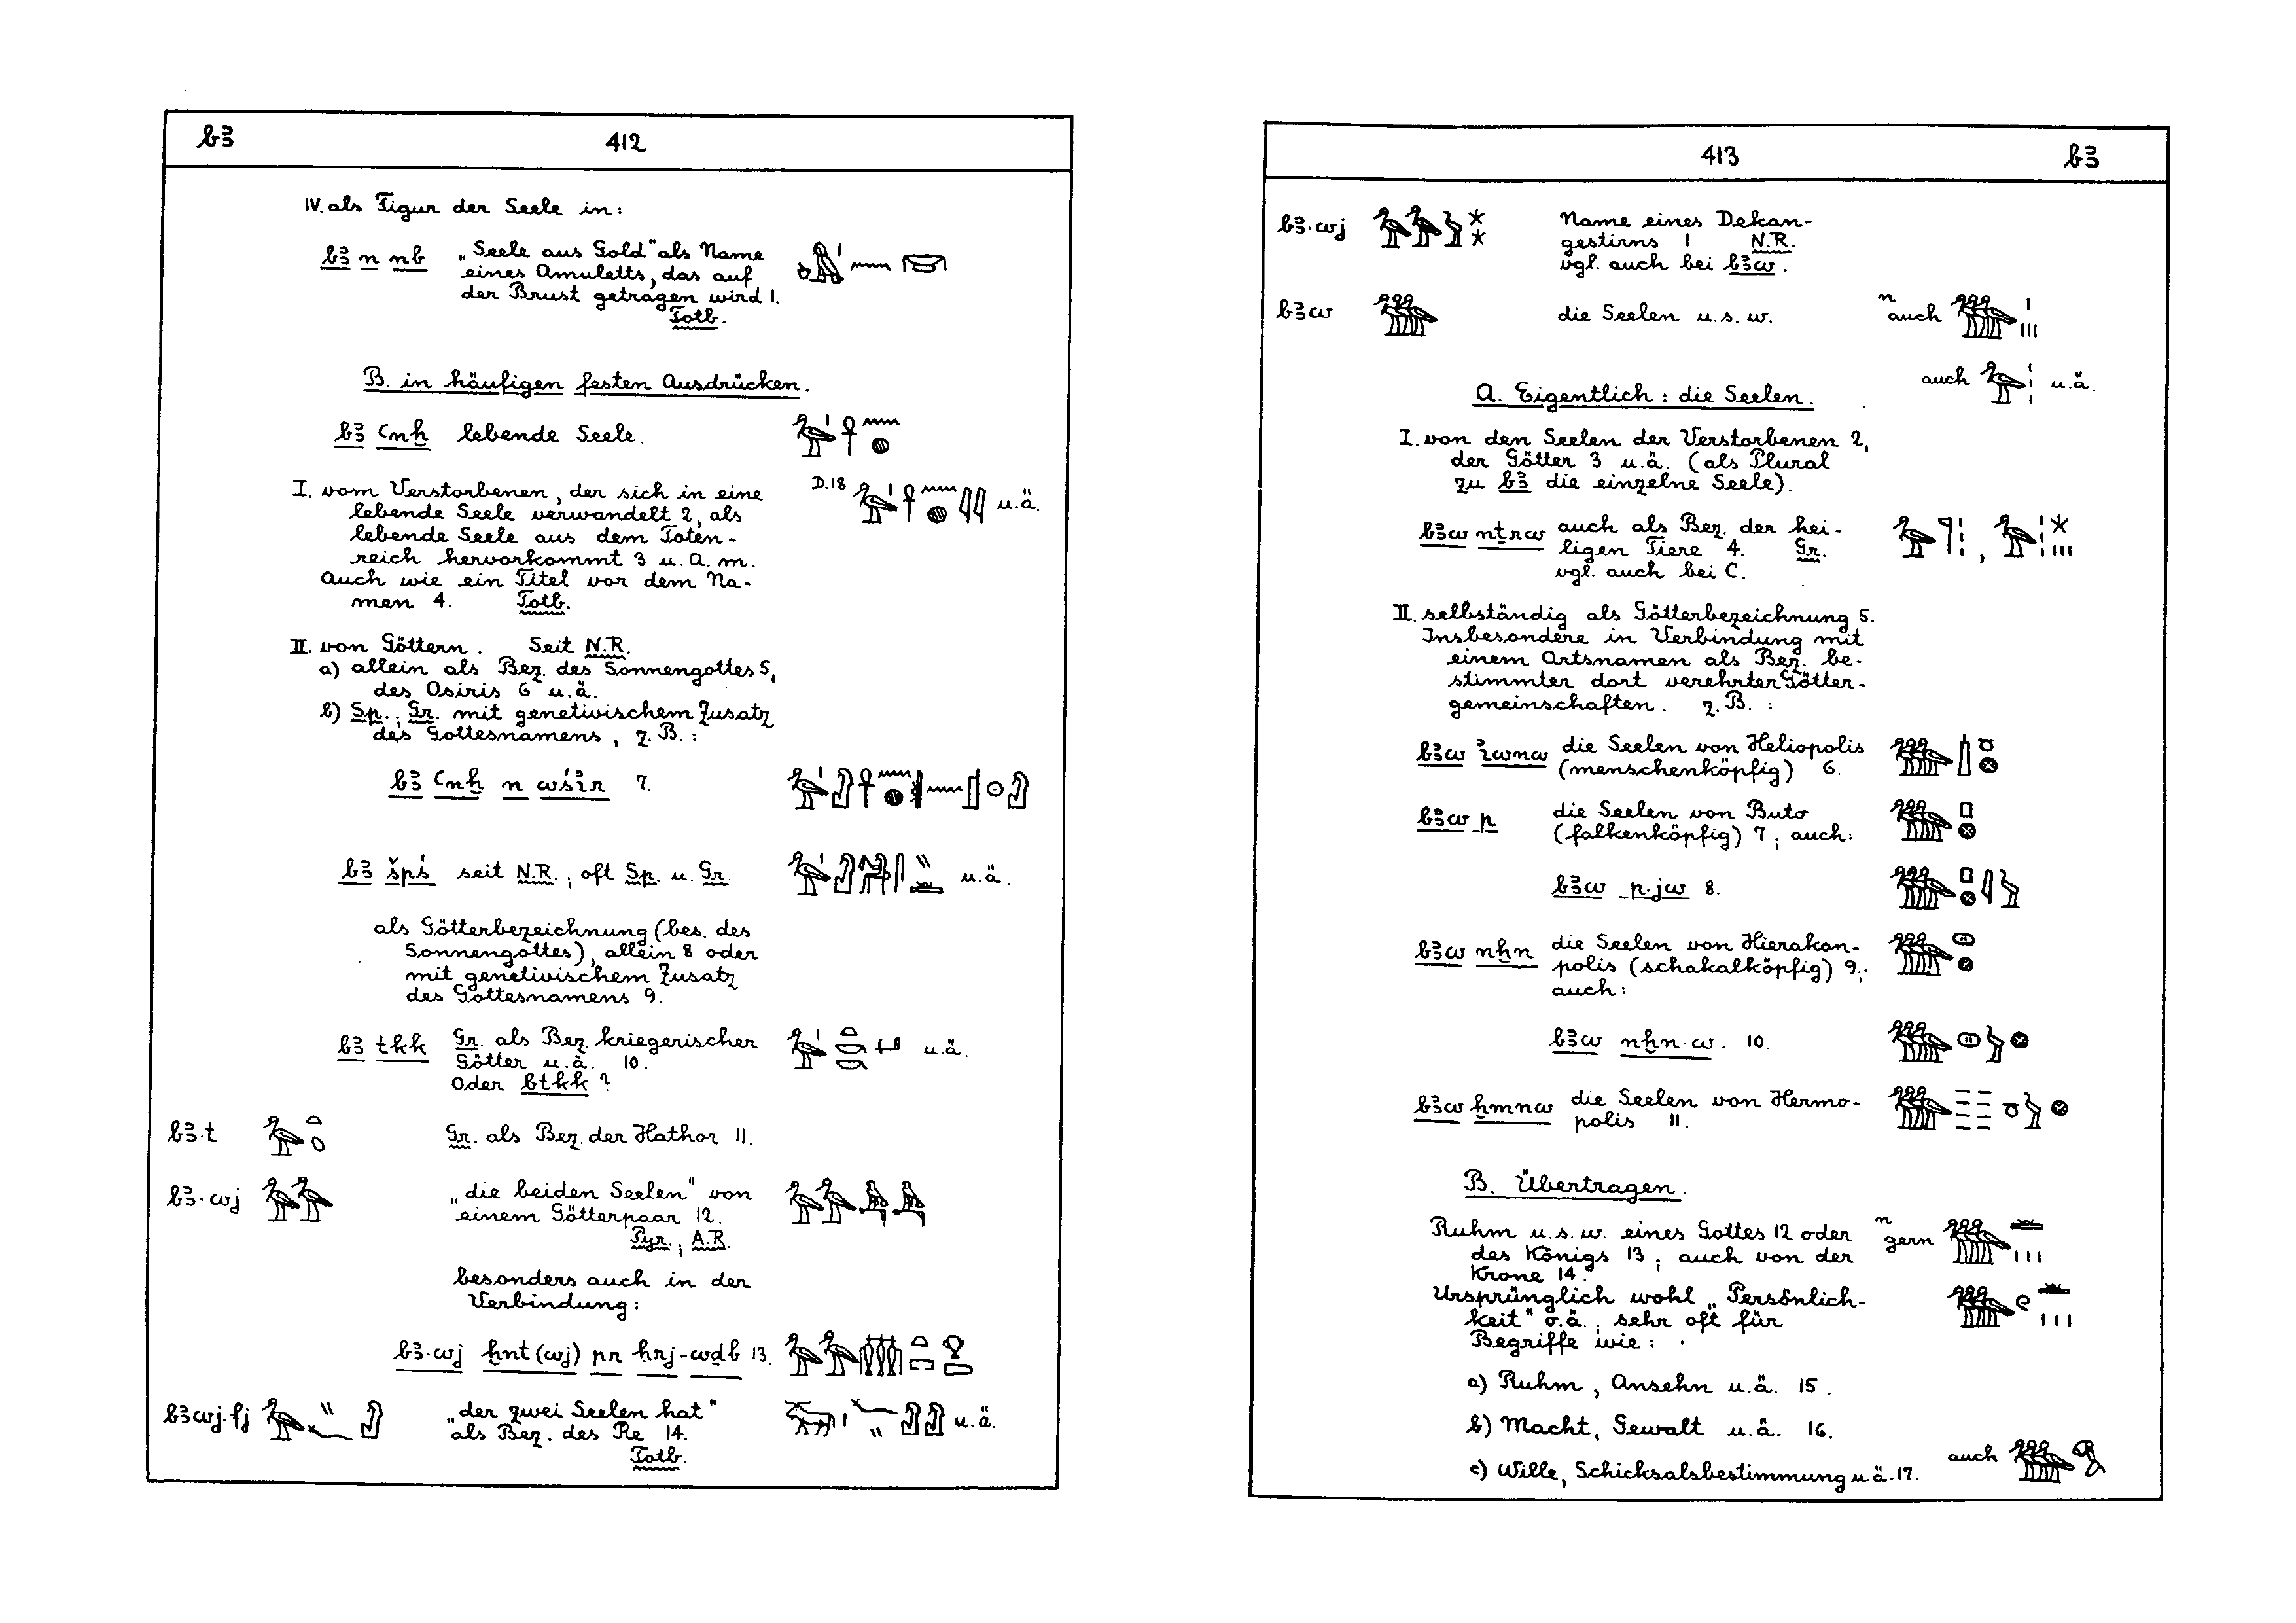 bꜣ 412
IV. als Figur der Seele in:
bꜣ n nb „Seele aus Gold" als Name
eines Amuletts, das auf
der Brust getragen wird 1.
Totb.
B. in häufigen festen Ausdrücken.
bꜣ ꜥnḫ lebende Seele.
I. vom Verstorbenen, der sich in eine
lebende Seele verwandelt 2, als
lebende Seele aus dem Toten-
reich hervorkommt 3 u. a. m.
Auch wie ein Titel vor dem Na-
men 4. Totb.
D.18 u.ä.
II. von Göttern. Seit N.R.
a) allein als Bez. des Sonnengottes 5,
des Osiris 6 u.ä.
b) Sp., Gr. mit genetivischem Zusatz
des Gottesnamens, z.B.:
bꜣ ꜥnḫ n wśỉr 7.
bꜣ špś seit N.R.; oft Sp. u. Gr. u.ä.
als Götterbezeichnung (bes. des
Sonnengottes), allein 8 oder
mit genetivischem Zusatz
des Gottesnamens 9.
bꜣ tkk Gr. als Bez. kriegerischer u.ä.
Götter u.ä. 10.
Oder btkk ?
bꜣ.t Gr. als Bez. der Hathor 11.
bꜣ.wj „die beiden Seelen" von
einem Götterpaar 12.
Pyr.; A.R.
besonders auch in der
Verbindung:
bꜣ.wj ḫnt(wj) pr ḥrj-wdb 13.
bꜣwj.fj „der zwei Seelen hat" u.ä.
als Bez. des Re 14.
Totb.
413 bꜣ
bꜣ.wj Name eines Dekan-
gestirns 1 N.R.
vgl. auch bei bꜣw.
bꜣw die Seelen u.s.w. n auch
auch u.ä.
A. Eigentlich: die Seelen.
I. von den Seelen der Verstorbenen 2,
der Götter 3 u.ä. (als Plural
zu bꜣ die einzelne Seele).
bꜣw nṯrw auch als Bez. der hei-
ligen Tiere 4. Gr.
vgl. auch bei C.
II. selbständig als Götterbezeichnung 5.
Insbesondere in Verbindung mit
einem Ortsnamen als Bez. be-
stimmter dort verehrter Götter-
gemeinschaften. z.B.:
bꜣw ỉwnw die Seelen von Heliopolis
(menschenköpfig) 6.
bꜣw p die Seelen von Buto
(falkenköpfig) 7; auch:
bꜣw p.jw 8.
bꜣw nḫn die Seelen von Hierakon-
polis (schakalköpfig) 9;
auch:
bꜣw nḫn.w. 10.
bꜣw ḫmnw die Seelen von Hermo-
polis 11.
B. Übertragen.
Ruhm u.s.w. eines Gottes 12 oder n gern
des Königs 13; auch von der
Krone 14.
Ursprünglich wohl „Persönlich-
keit" o.ä.; sehr oft für
Begriffe wie:
a) Ruhm, Ansehn u.ä. 15.
b) Macht, Gewalt u.ä. 16.
c) Wille, Schicksalsbestimmung u.ä. 17. auch